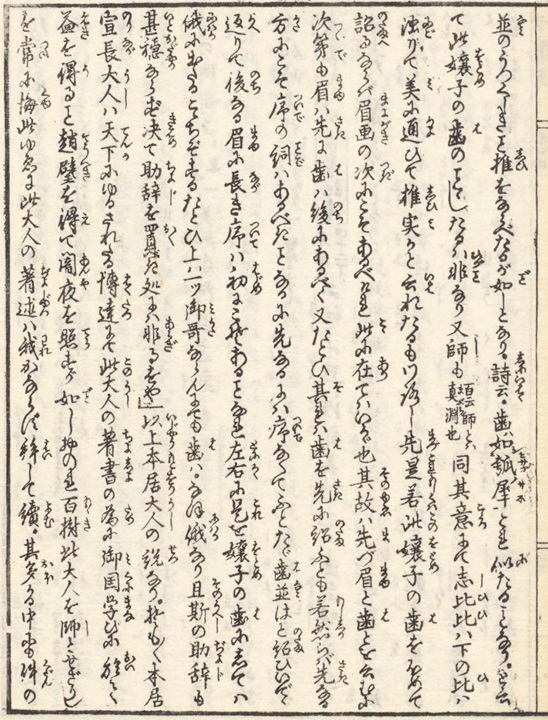 並のうつくしきを椎をならべたるが如しとなり。詩云。歯如瓠犀とも似たることなり。
て此嬢子の歯のことゝしたるハ非なり又師も百云師とハ真淵也同其意にて志比比ハ下の比ハ
濁がて美に通ひて椎実かと云れたるもいかゞし先是若此嬢子の歯をほめて
詔るならバ眉画の次にこそあるべけれ此に在てハいかゞ也其故ハ先づ眉と歯とを云むに
次第も眉ハ先に歯ハ後にあるべく又たとひ其を歯を先に紹ふとも若然らバ先なる
方にこそ序の詞ハあるべきことなるに先なるにハ序なくてふとたゞ歯並はと紹ひいでゞ
返りて後なる眉に長き序ハ初にこそあることなれ左右に見を嬢子の歯にしてハ
俄にきたるこゝちぞするたとひ上ハ一ツ御哥ならんにても歯ハ。なほ俄なり且斯の助辞も
甚穏ならず決て助辞を置べき処にハ非るをや」以上本居大人の説なり。抑もく本居
宣長大人ハ天下にゆるされたる博達にて此大人の著書の為に御国学びに於て
益を得ること趙璧を得て闇夜を照すが如しかのれ百樹此大人を師とせざりし
を常に悔此ゆゑに此大人の著述ハ我かならず繰して読。其多かる中にも件の